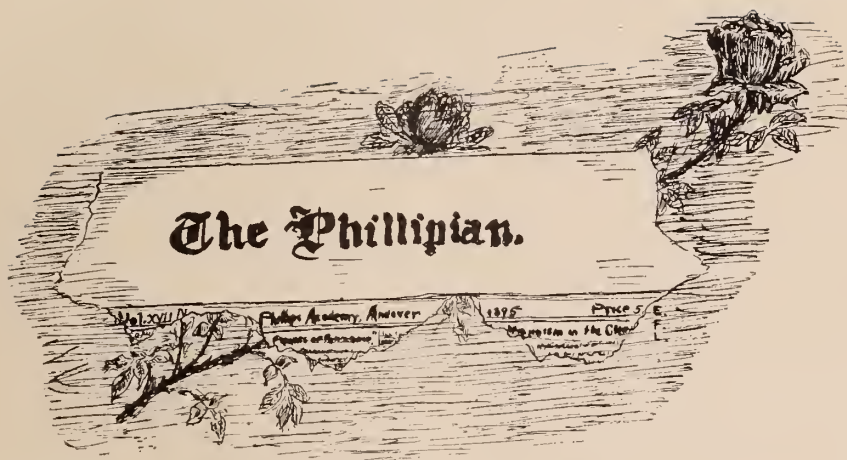 The Phillipian.
Vol. XVII Phillips Academy, Andover 1895 Price 5
in the
E.
F.
L.